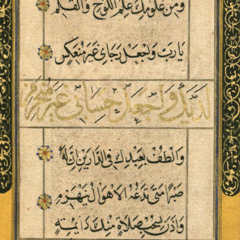 ومن علومك علم اللوح والقلم
يا رب واجعل رجائي غير منعكس
لديك واجعل حسابي غير منخرم
والطف بعبدك في الدارين إن له
صبرا متى تدعه الأهوال ينهزم
وأذن لسحب صلاة منك دائمة